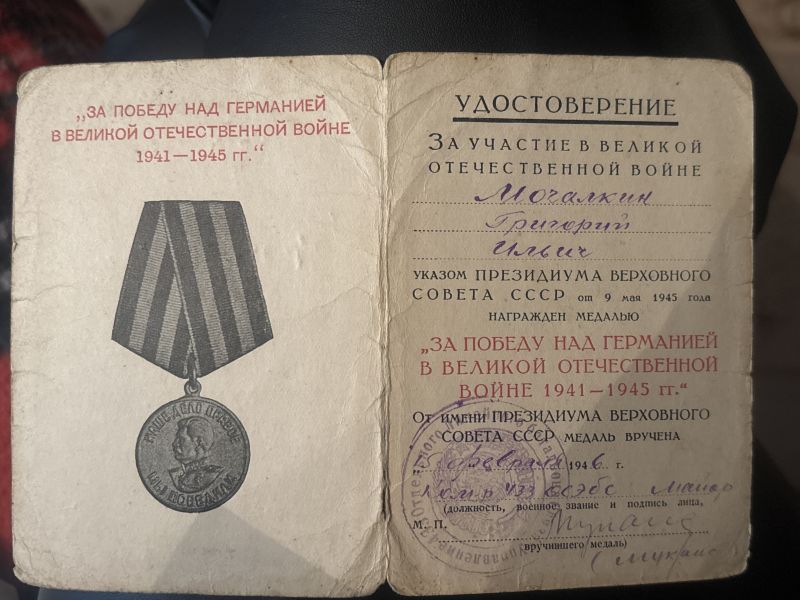 „ЗА ПОБЕДУ НАД ГЕРМАНИЕЙ
В ВЕЛИКОЙ ОТЕЧЕСТВЕННОЙ ВОЙНЕ
1941—1945 гг.“
НАШЕ ДЕЛО ПРАВОЕ
МЫ ПОБЕДИЛИ
УДОСТОВЕРЕНИЕ
ЗА УЧАСТИЕ В ВЕЛИКОЙ
ОТЕЧЕСТВЕННОЙ ВОЙНЕ
Мочалкин
Григорий
Ильич
УКАЗОМ ПРЕЗИДИУМА ВЕРХОВНОГО
СОВЕТА СССР от 9 мая 1945 года
НАГРАЖДЕН МЕДАЛЬЮ
„ЗА ПОБЕДУ НАД ГЕРМАНИЕЙ
В ВЕЛИКОЙ ОТЕЧЕСТВЕННОЙ
ВОЙНЕ 1941—1945 гг.“
ОТ ИМЕНИ ПРЕЗИДИУМА ВЕРХОВНОГО
СОВЕТА СССР МЕДАЛЬ ВРУЧЕНА
февраля 1946 г.
майор
(должность, военное звание и подпись лица,
М. П.
вручившего медаль)
Управление Отдельного